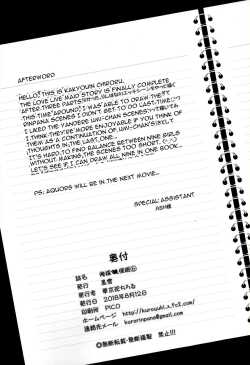 AFTERWORD
HELLO! THIS IS KAKYOUIN CHIRORU.
THE LOVE LIVE MAID STORY IS FINALLY COMPLETE
AFTER THREE PARTS
THIS TIME AROUND I WAS ABLE TO DRAW THE
SCENES I DIDN'T GET TO DO LAST TIME
I LIKED THE YANDERE UMI-CHAN SCENES
I THINK THEY'RE MORE ENJOYABLE IF YOU THINK OF
THEM AS A CONTINUATION OF UMI-CHAN'S
THOUGHTS IN THE LAST ONE...
IT'S HARD TO FIND BALANCE BETWEEN NINE GIRLS
WITHOUT MAKING THE SCENES TOO SHORT.
LET'S SEE IF I CAN DRAW ALL NINE IN ONE BOOK...
PS: AQUORS WILL BE IN THE NEXT MOVIE...
SPECIAL ASSISTANT
ASH様
奥付
発行 黒雪
発行日 2018年8月12日
印刷所 PICO
ホームページ http://kuroyuki.x.fc2.com/
連絡先メール
無断転載・無断複製 禁止!!!